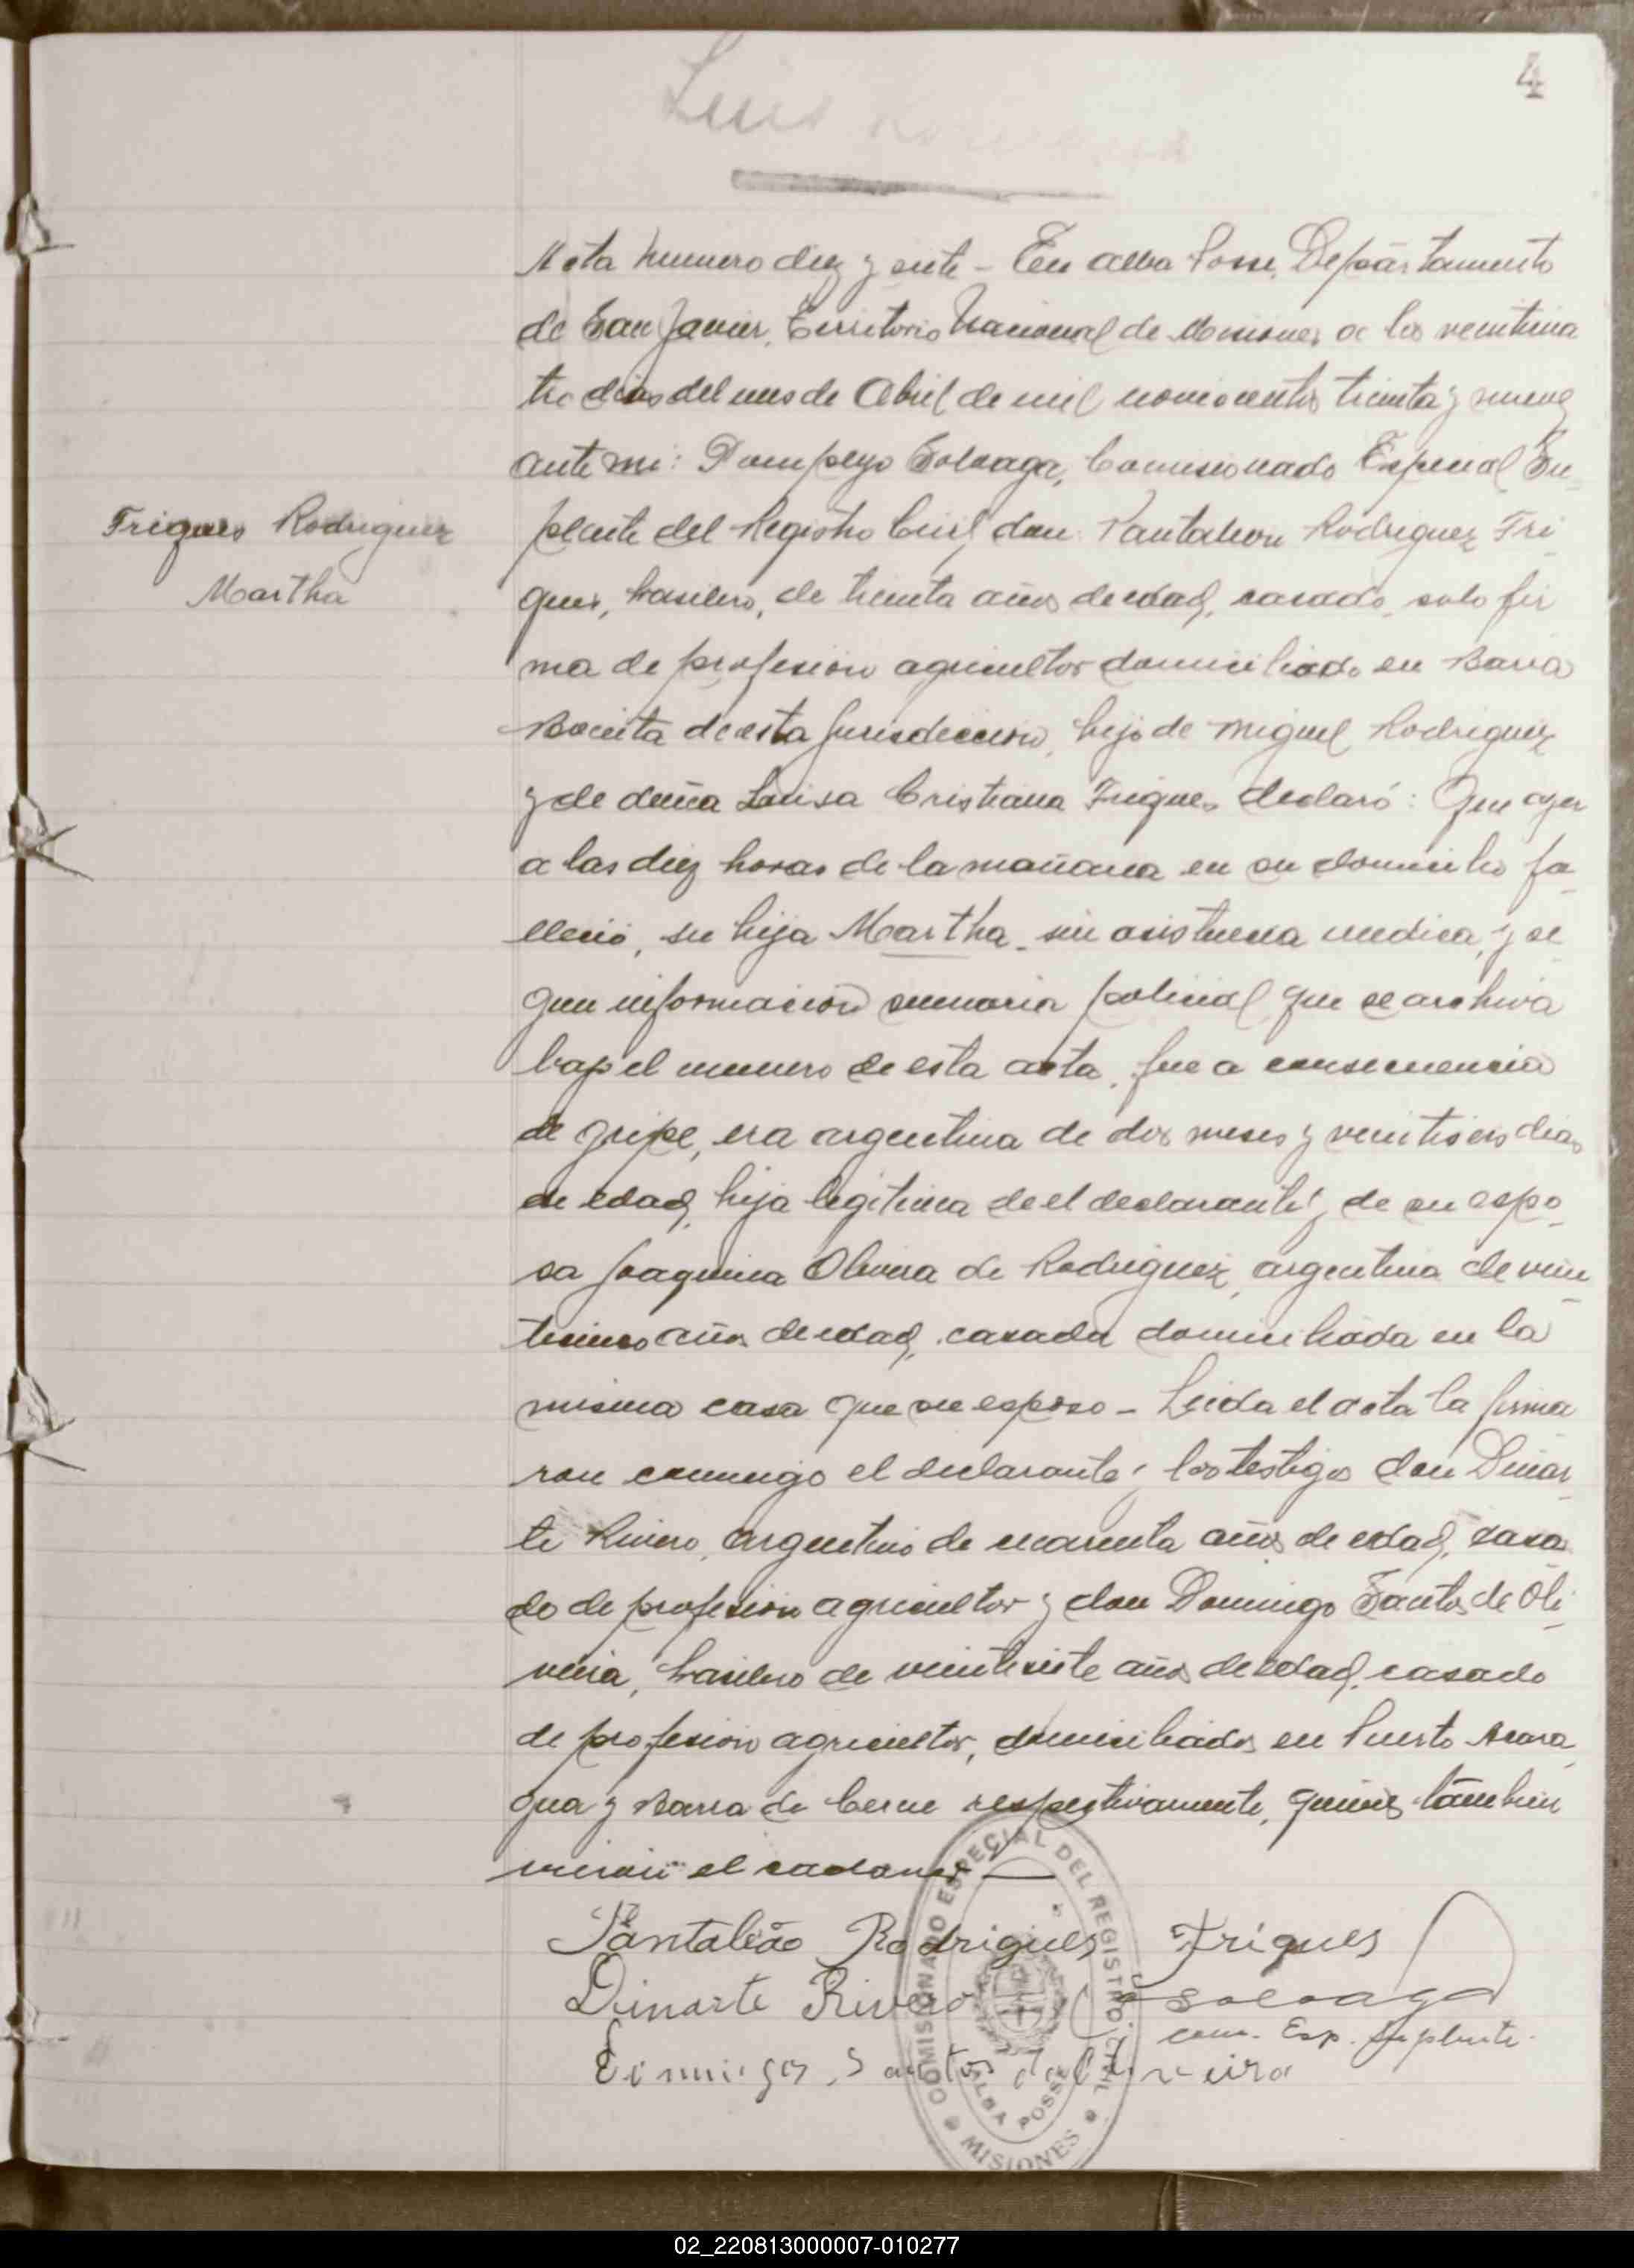 4
Luis
Acta numero diez y siete - En Alba Posse, Departamento
de San Javier, Territorio Nacional de Misiones a los veinticua
tro dias del mes de Abril de mil novecientos treinta y nueve
ante mi: Pompeyo Soloaga, Comisionado Especial Su-
plente del Registro Civil don Pantaleon Rodriguez Fri-
ques, brasilero, de treinta años de edad, casado, solo fir
ma de profesion agricultor domiciliado en Barra
Bonita de esta Jurisdiccion, hijo de Miguel Rodriguez
y de doña Luisa Cristiana Friques declaró: Que ayer
a las diez horas de la mañana en su domicilio fa-
llecio, su hija Martha sin asistencia medica, y se
gun informacion sumaria policial que se archiva
bajo el numero de esta acta, fue a consecuencia
de gripe, era argentina de dos meses y veintiseis dias
de edad, hija legitima de el declarante y de su espo-
sa Joaquina Olivera de Rodriguez, argentina de vein-
ticinco años de edad, casada domiciliada en la
misma casa que su esposo - Leida el acta la firma
ron conmigo el declarante y los testigos don Dinar-
te Rivero, argentino de cuarenta años de edad, casa-
do de profesion agricultor y don Domingo Santos de Oli-
veira, brasilero de veintisiete años de edad, casado
de profesion agricultor, domiciliados en Puerto Acara-
gua y Barra de respectivamente, quienes tambien
vieron el cadaver —
Friques Rodriguez
Martha
Pantaleão Rodrigues Friques
Dinarte Rivero
Soloaga
com. Esp. Suplente.
Domingos Santos de Oliveira
COMISIONARIO ESPECIAL DEL REGISTRO CIVIL
ALBA POSSE
MISIONES
02_220813000007-010277